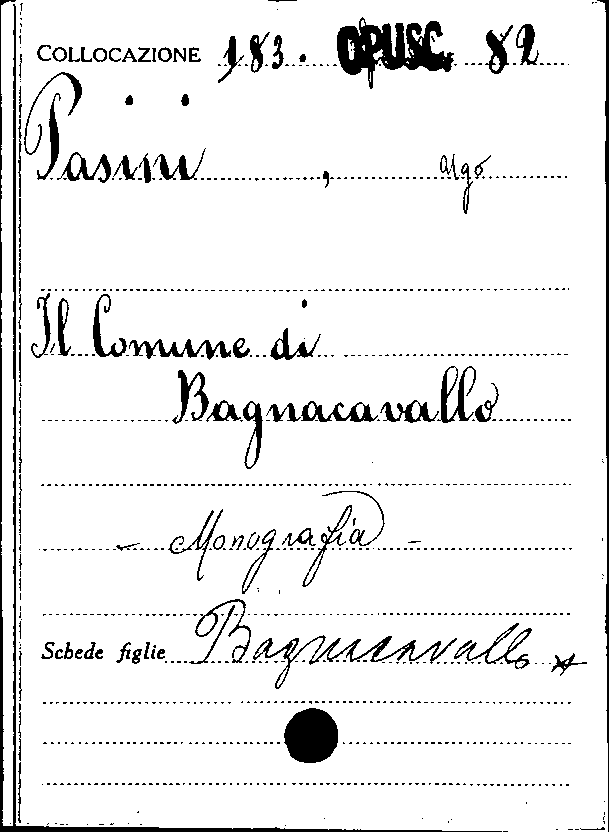 COLLOCAZIONE 183. OPUSC. 82
Pasini , Ugo
Il Comune di
Bagnacavallo
- Monografia -
Schede figlie Bagnacavallo *